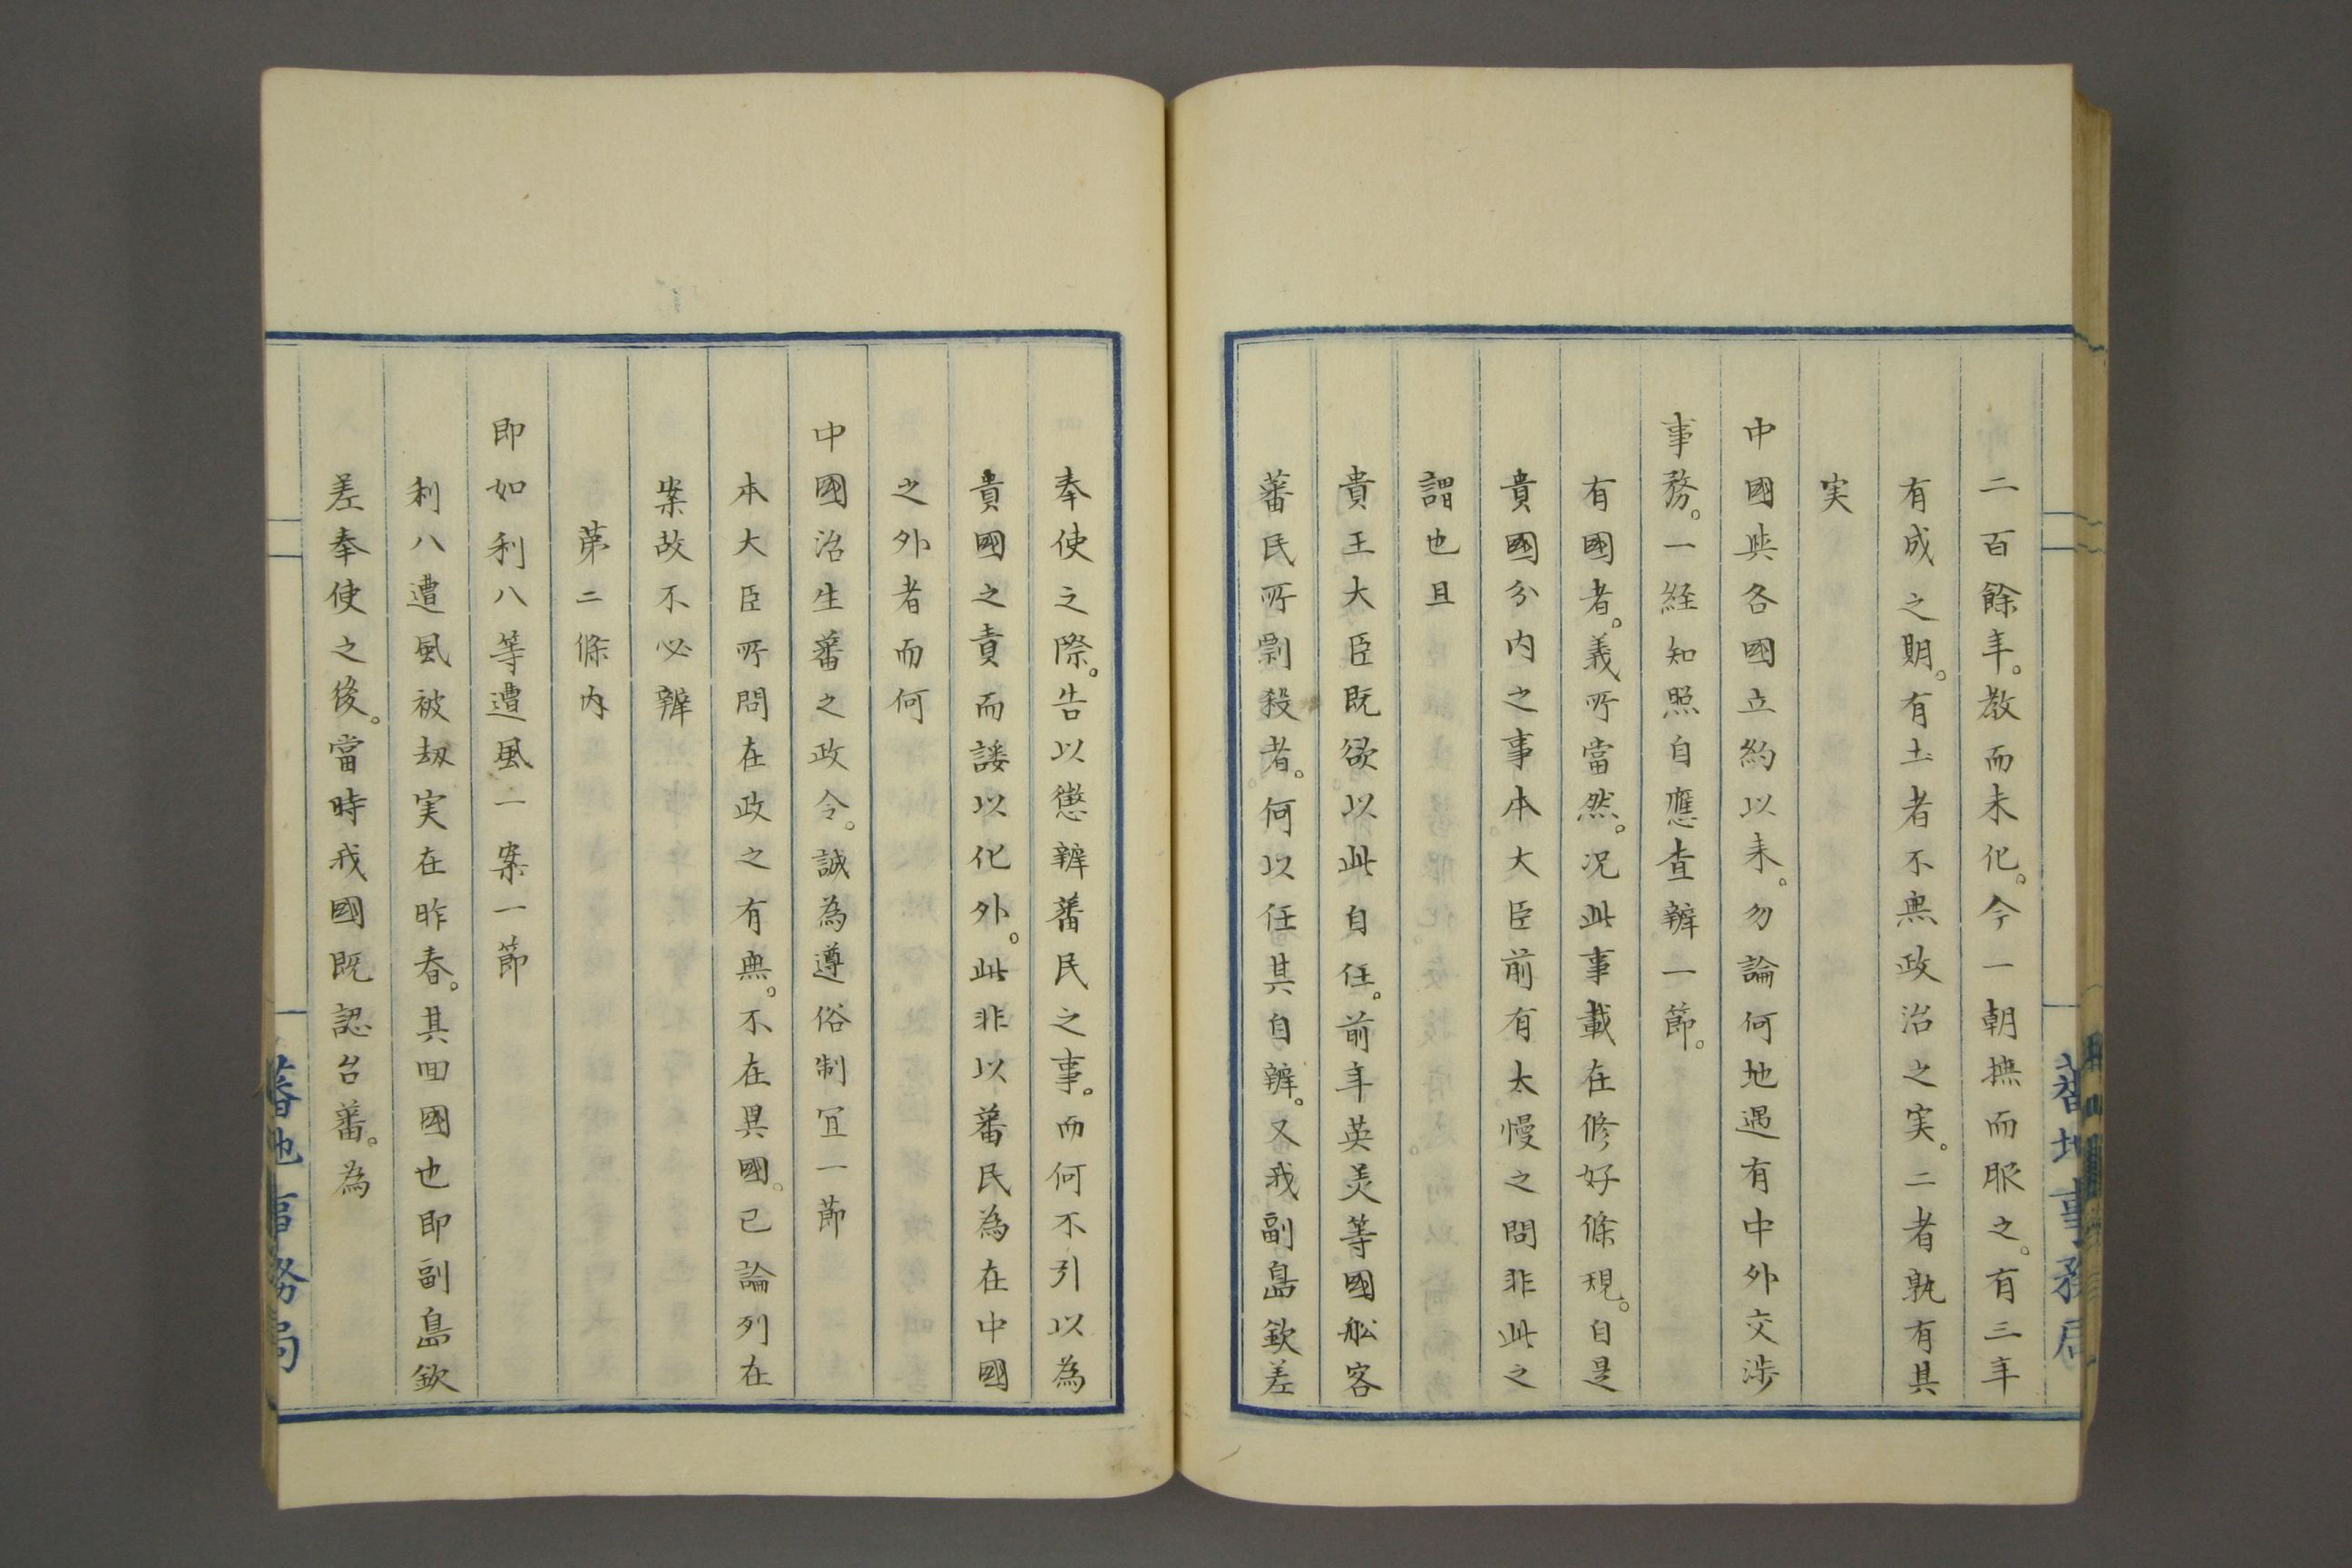 二百餘年。教而未化。今一朝撫而服之。有三年
有成之期。有土者不無政治之実。二者孰有其
実
中國與各國立約以来。勿論何地遇有中外交渉
事務。一経知照自應査辦一節。
有國者。義所當然。况此事載在修好條規。自是
貴國分内之事本大臣前有太慢之問非此之
謂也且
貴王大臣既欲以此自任。前年英美等國舩客
蕃民所剽殺者。何以任其自辦。又我副島欽差
奉使之際。告以懲辦蕃民之事。而何不引以為
貴國之責而諉以化外。此非以蕃民為在中國
之外者而何
中國治生蕃之政令。誠為遵俗制宜一節
本大臣所問在政之有無。不在異國。已論列在
案故不必辦
第二條内
即如利八等遭風一案一節
利八遭風被刼実在昨春。其回國也即副島欽
差奉使之後。當時我國既認台蕃。為
蕃地事務局
蕃地事務局